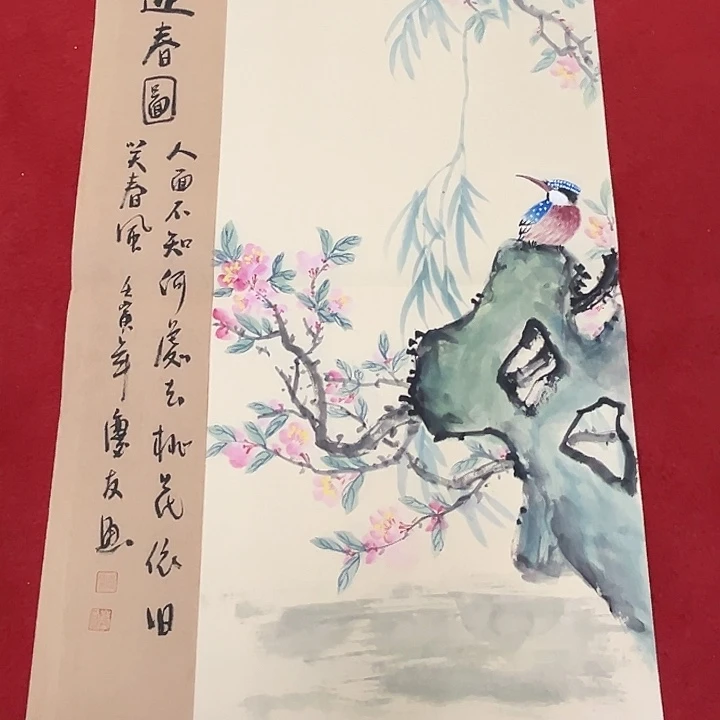 迎春圖
人面不知何處去桃花依旧
笑春風
壬寅年慶友画